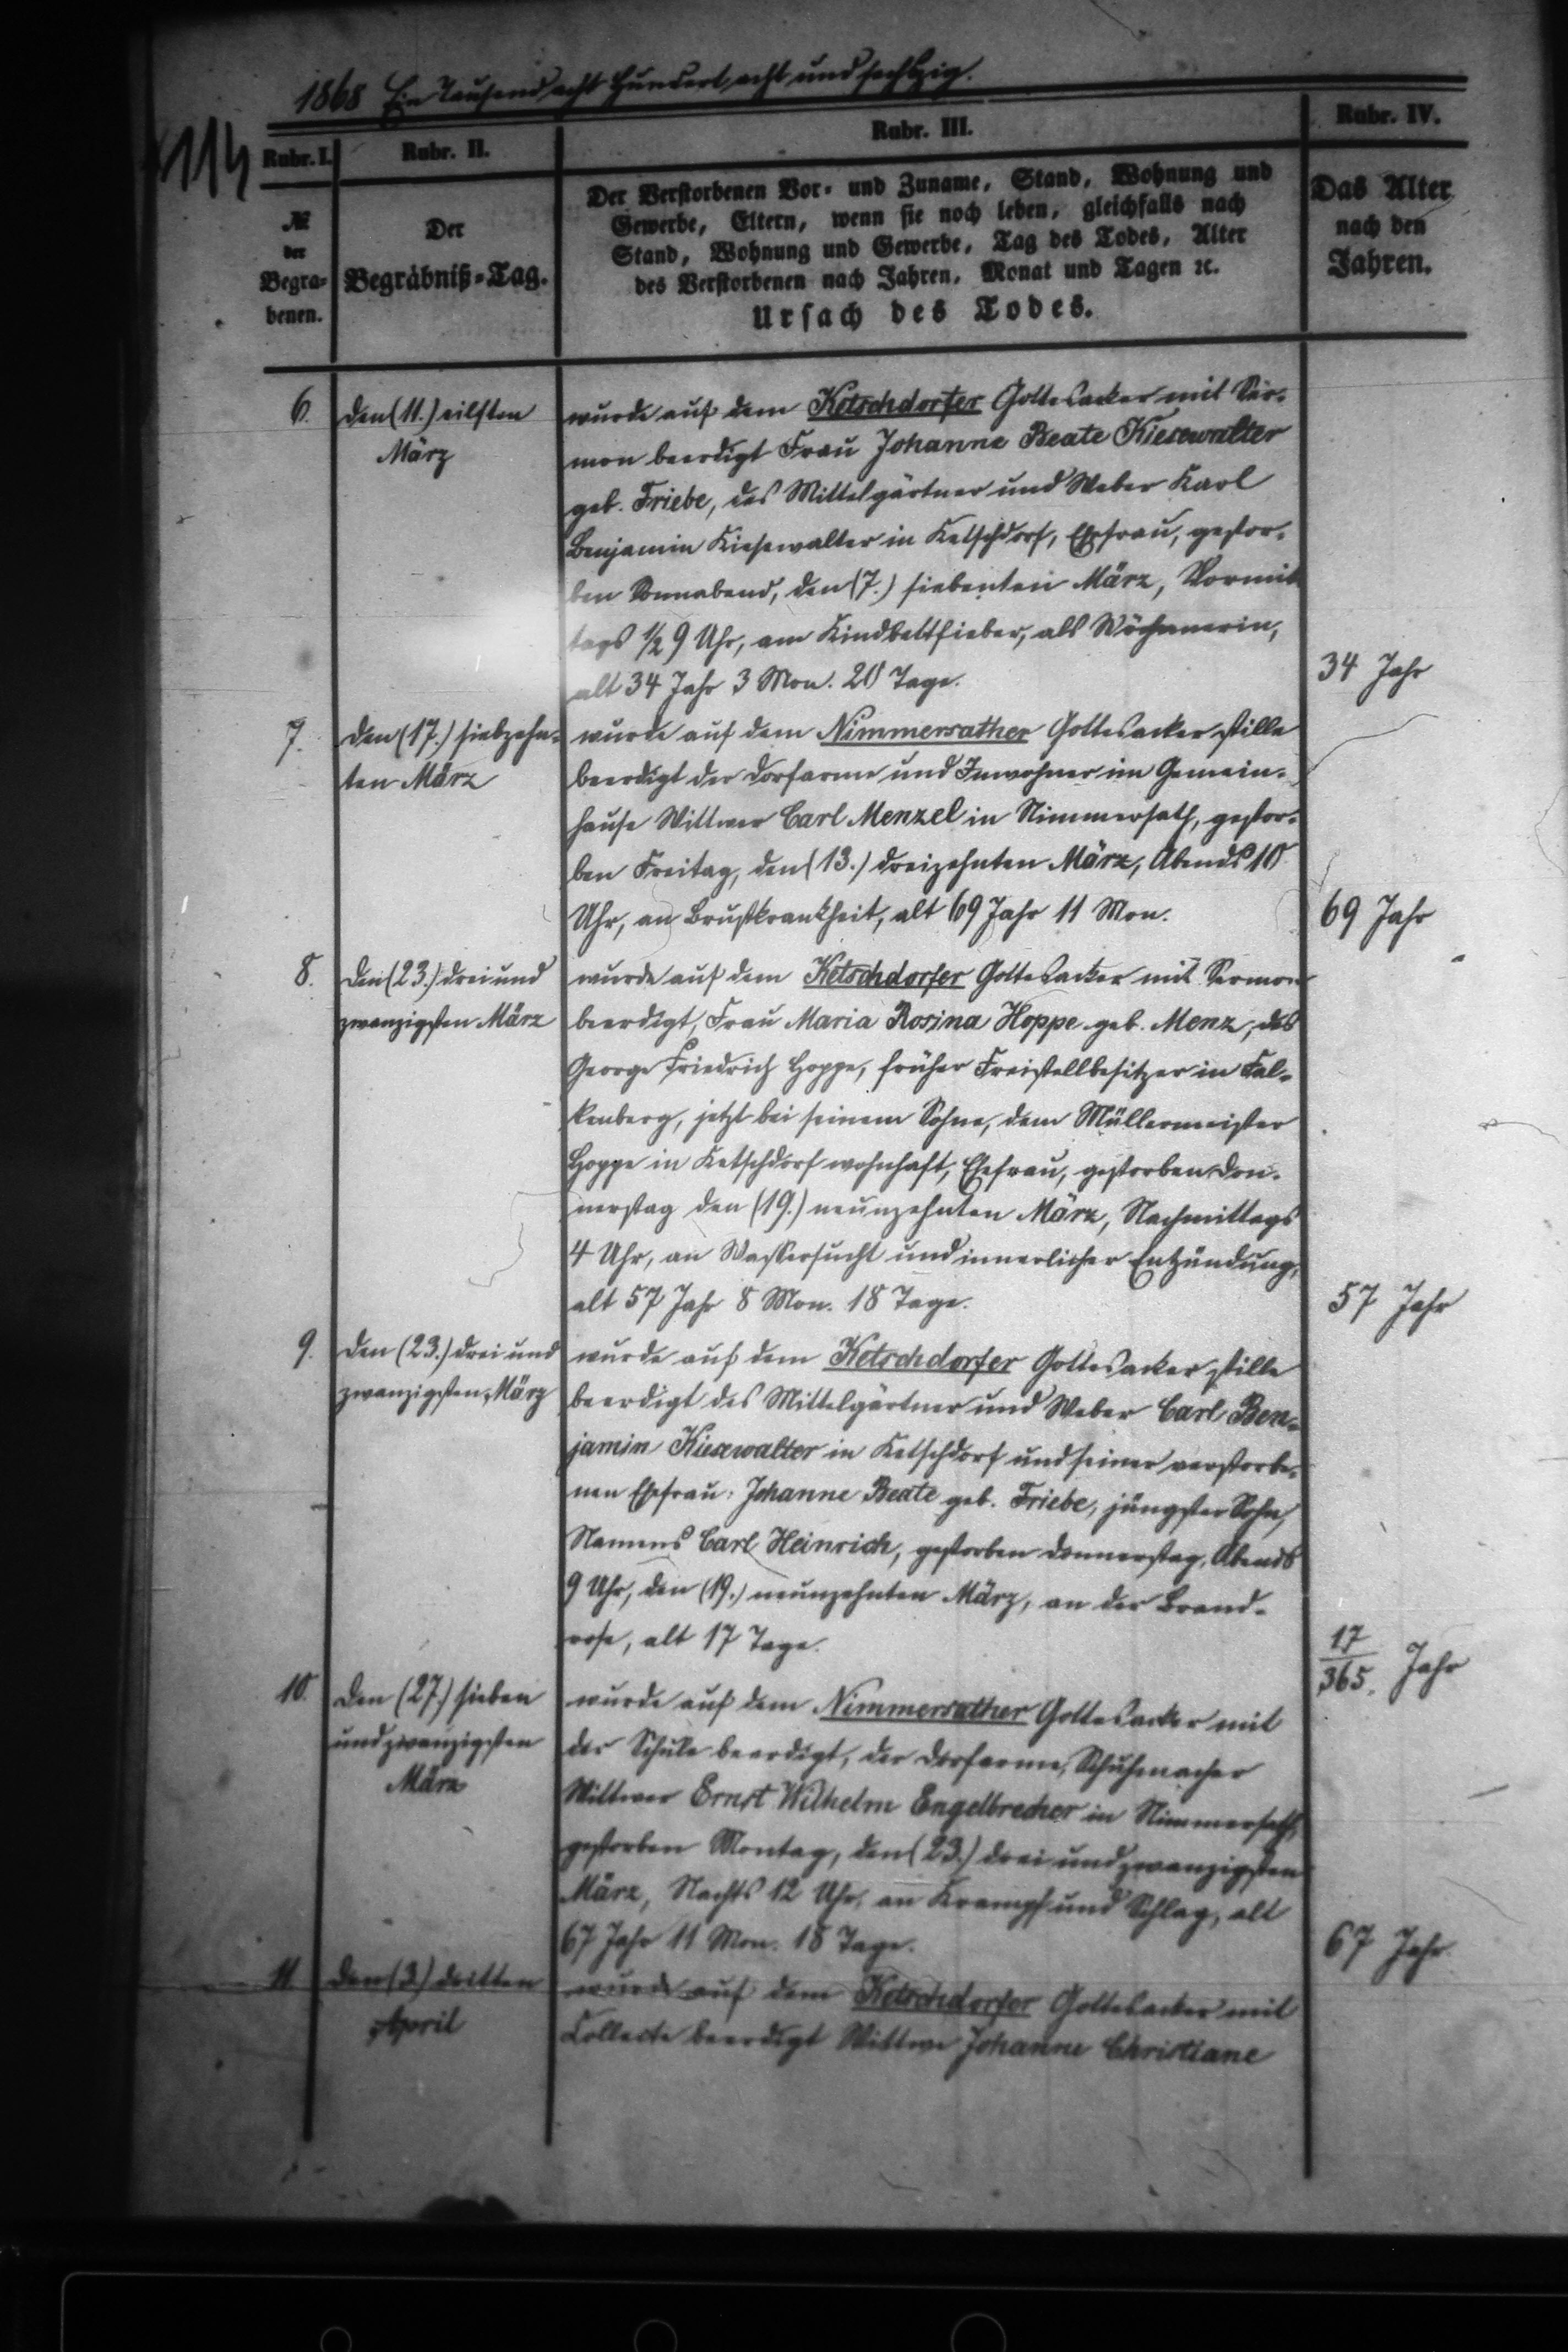 1868 Ein Tausend acht Hundert acht und sechszig.
114
Rubr. I.
Rubr. II.
Rubr. III.
Rubr. IV.
№
der
Begra-
benen.
Der
Begräbniß-Tag.
Der Verstorbenen Vor- und Zuname, Stand, Wohnung und
Gewerbe, Eltern, wenn sie noch leben, gleichfalls nach
Stand, Wohnung und Gewerbe, Tag des Todes, Alter
des Verstorbenen nach Jahren, Monat und Tagen ꝛc.
Ursach des Todes.
Das Alter
nach den
Jahren.
6.
den (11.) eilften
März
wurde auf dem Ketschdorfer Gottesacker mit Ser-
mon beerdigt Frau Johanne Beate Kiesewalter
geb. Friebe, des Mittelgärtner und Weber Karl
Benjamin Kiesewalter in Ketschdorf, Ehefrau, gestor-
ben Sonnabend, den (7.) siebenten März, Vormit
tags ½ 9 Uhr, am Kindbettfieber, als Wöchnerin,
alt 34 Jahr 3 Mon. 20 Tage.
34 Jahr
7.
den (17.) siebzehn-
ten März
wurde auf dem Nimmersather Gottesacker stille
beerdigt der Dorfarme und Inwohner im Gemein-
hause Wittwer Carl Menzel in Nimmersath, gestor-
ben Freitag, den (13.) dreizehnten März, Abends 10
Uhr, an Brustkrankheit, alt 69 Jahr 11 Mon.
69 Jahr
8.
den (23.) drei und
zwanzigsten März
wurde auf dem Ketschdorfer Gottesacker mit Sermon
beerdigt, Frau Maria Rosina Hoppe geb. Menz, des
George Friedrich Hoppe, früher Freistellbesitzer in Fal-
kenberg, jetzt bei seinem Sohne, dem Müllermeister
Hoppe in Ketschdorf wohnhaft, Ehefrau, gestorben Don-
nerstag den (19.) neunzehnten März, Nachmittags
4 Uhr, an Wassersucht und innerlicher Entzündung,
alt 57 Jahr 8 Mon. 18 Tage.
57 Jahr
9.
den (23.) drei und
zwanzigsten März
wurde auf dem Ketschdorfer Gottesacker stille
beerdigt des Mittelgärtner und Weber Carl Ben-
jamin Kiesewalter in Ketschdorf und seiner verstorbe-
nen Ehefrau: Johanne Beate geb. Friebe, jüngster Sohn,
Namens Carl Heinrich, gestorben Donnerstag, Abends
9 Uhr, den (19.) neunzehnten März, an der Brand-
rose, alt 17 Tage.
17/365. Jahr
10.
den (27.) sieben
und zwanzigsten
März
wurde auf dem Nimmersather Gottesacker mit
der Schule beerdigt, der Dorfarme, Schuhmacher
Wittwer Ernst Wilhelm Engelbrecher in Nimmersath,
gestorben Montag, den (23.) drei und zwanzigsten
März, Nachts 12 Uhr, an Krampf und Schlag, alt
67 Jahr 11 Mon. 18 Tage.
67 Jahr
11
den (3.) dritten
April
wurde auf dem Ketschdorfer Gottesacker mit
Collecte beerdigt Wittwe Johanne Christiane